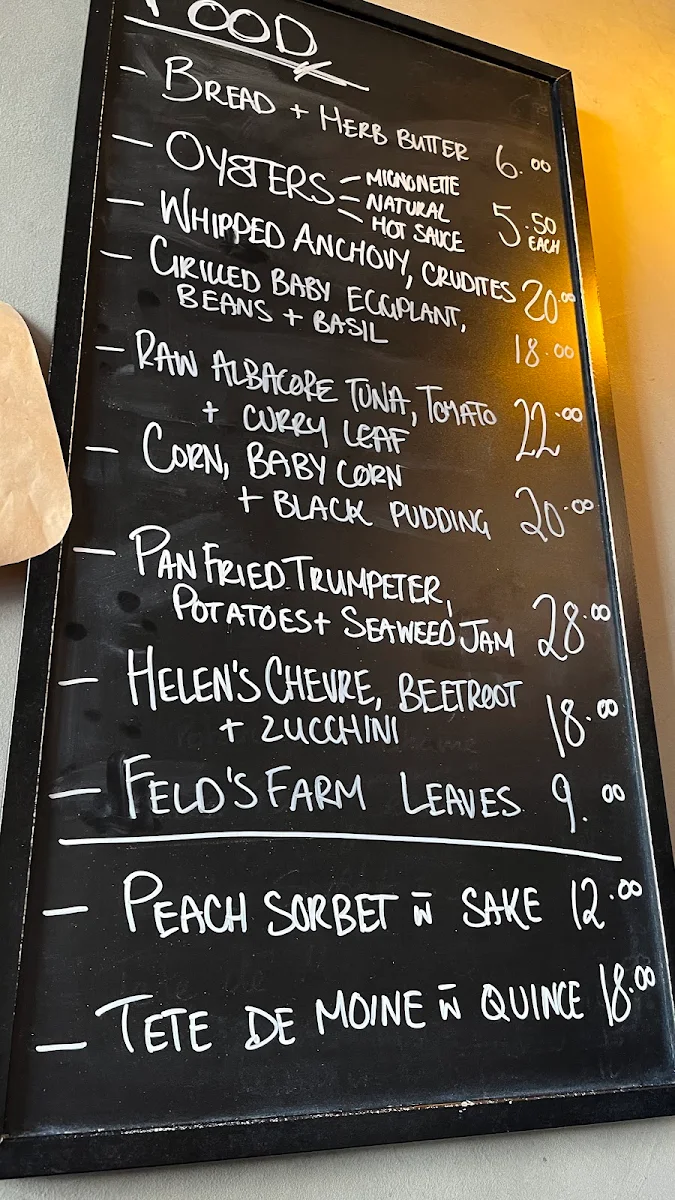 FOOD
- BREAD + HERB BUTTER 6.00
- OYSTERS - MIGNONETTE
- NATURAL
- HOT SAUCE 5.50 EACH
- WHIPPED ANCHOVY, CRUDITES 20.00
- GRILLED BABY EGGPLANT,
BEANS + BASIL 18.00
- RAW ALBACORE TUNA, TOMATO
+ CURRY LEAF 22.00
- CORN, BABY CORN
+ BLACK PUDDING 20.00
- PAN FRIED TRUMPETER,
POTATOES + SEAWEED JAM 28.00
- HELEN'S CHEVRE, BEETROOT
+ ZUCCHINI 18.00
- FELD'S FARM LEAVES 9.00
- PEACH SORBET W̄ SAKE 12.00
- TETE DE MOINE W̄ QUINCE 18.00